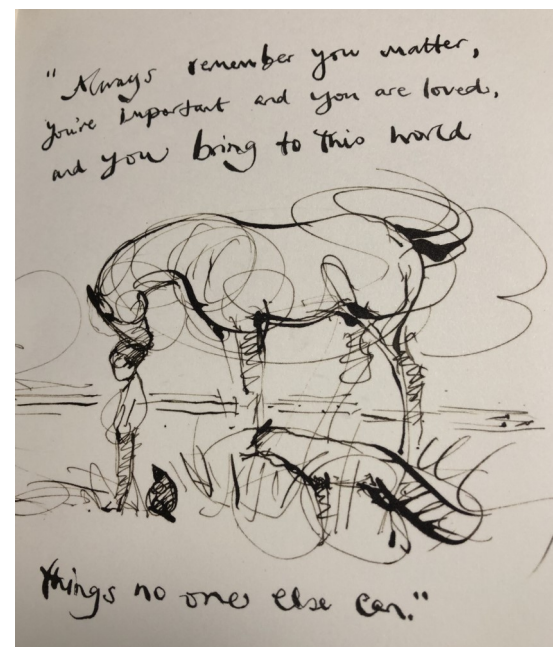 "Always remember you matter,
you're important and you are loved,
and you bring to this world
things no one else can."